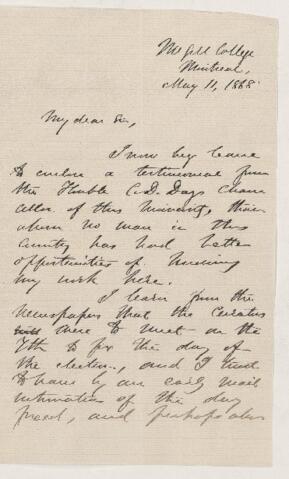 McGill College
Montreal,
May 11, 1868
My dear Sir,
I now beg leave
to enclose a testimonial from
the Honble C. D. Day, Chan
cellor of this University, than
whom no man in this
country has had better
opportunities of knowing
my work here.
I learn from the
newspapers that the Curators
were to meet on the
7th to fix the day of
the election, and I trust
to have by an early mail
intimation of the day
fixed, and perhaps also